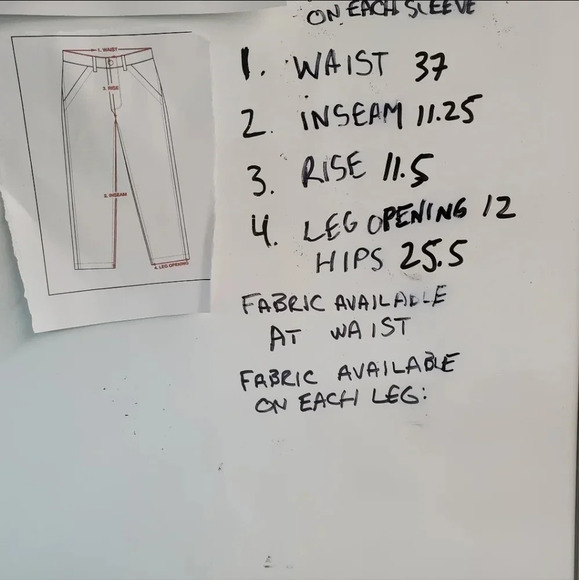 ON EACH SLEEVE
1. WAIST 37
2. INSEAM 11.25
3. RISE 11.5
4. LEG OPENING 12
HIPS 25.5
FABRIC AVAILABLE
AT WAIST
FABRIC AVAILABLE
ON EACH LEG:
1. WAIST
3. RISE
2. INSEAM
4. LEG OPENING